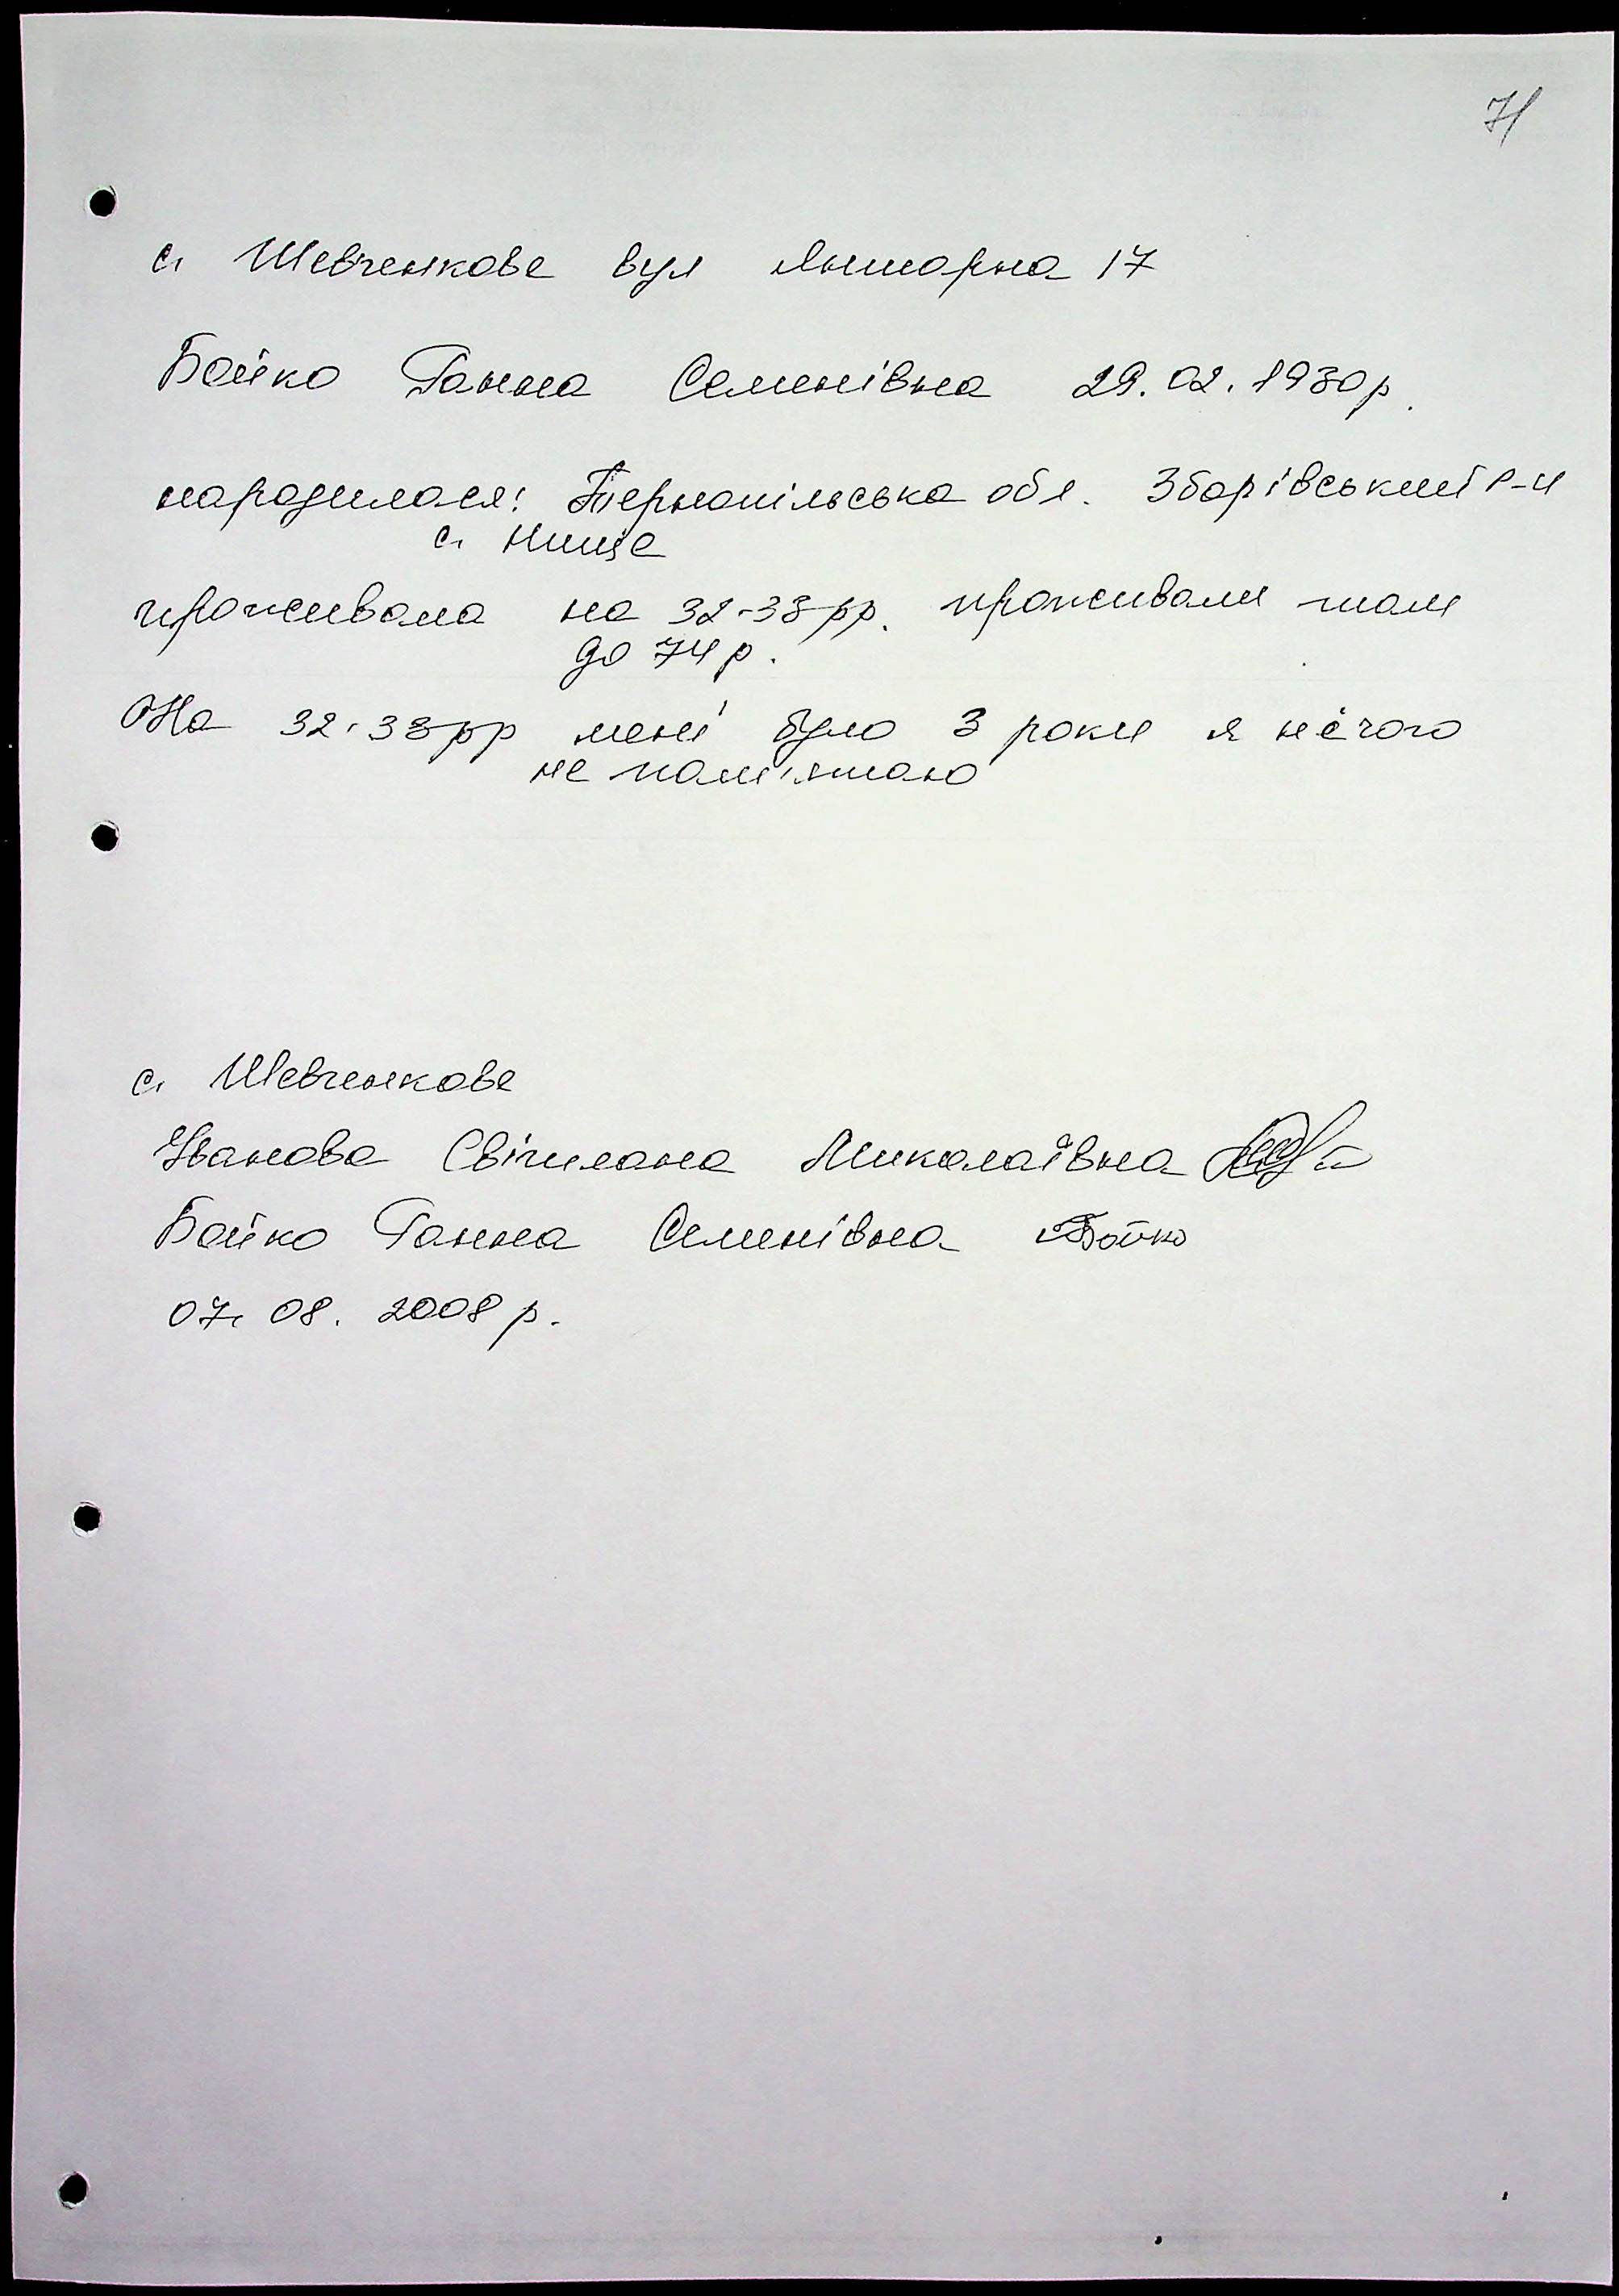 71
с. Шевченкове вул Янтарна 17
Бойко Ганна Семенівна 29.02.1930р.
народилася: Тернопільська обл. Зборівський р-н
с. Нище
проживала на 32-33рр. проживали там
до 74р.
На 32-33рр мені було 3 роки я нечого
не пам'ятаю
с. Шевченкове
Іванова Світлана Миколаївна
Бойко Ганна Семенівна Бойко
07. 08. 2008р.